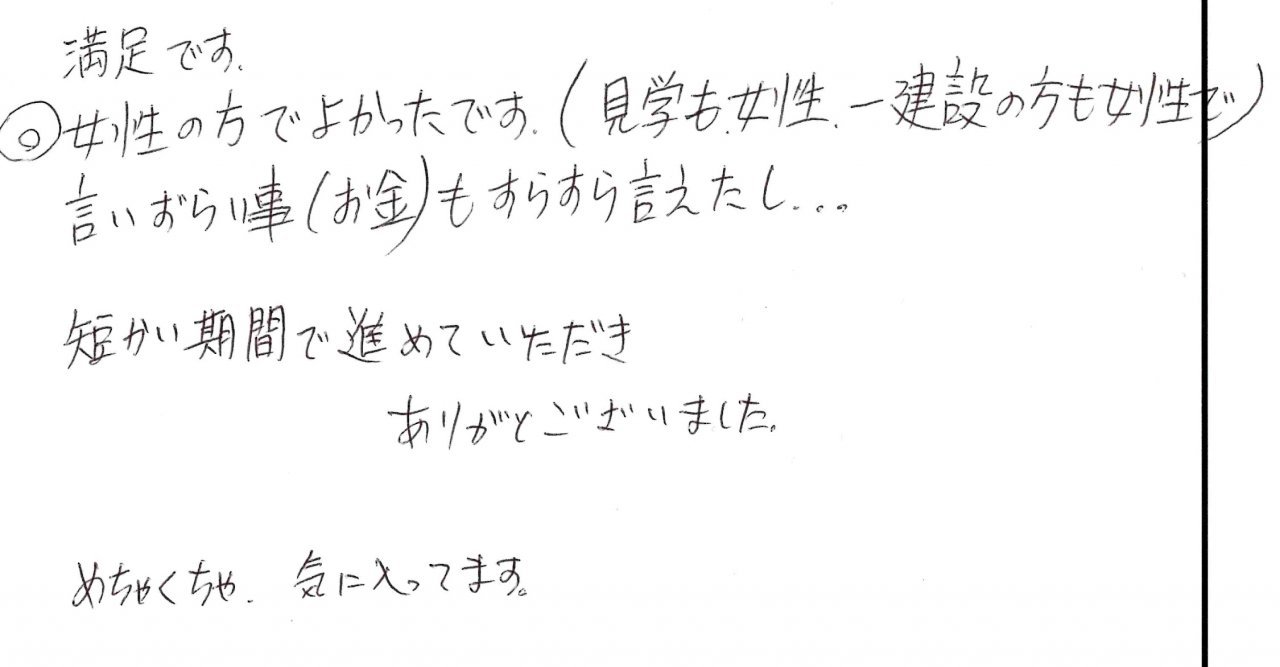 満足です.
◎女性の方でよかったです.(見学も女性.一建設の方も女性で)
言いずらい事(お金)もすらすら言えたし...
短かい期間で進めていただき
ありがとございました.
めちゃくちゃ. 気に入ってます。